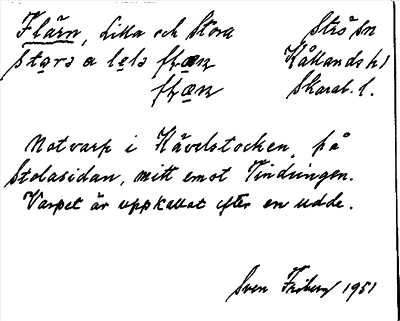 Flärn, Lilla och Stora Strö sn
Kållands hd
Skarab. l.
Notvarp i Hävelstocken, på
Stolasidan, mitt emot Vindringen.
Varpet är uppkallat efter en udde.
Sven Friberg 1951